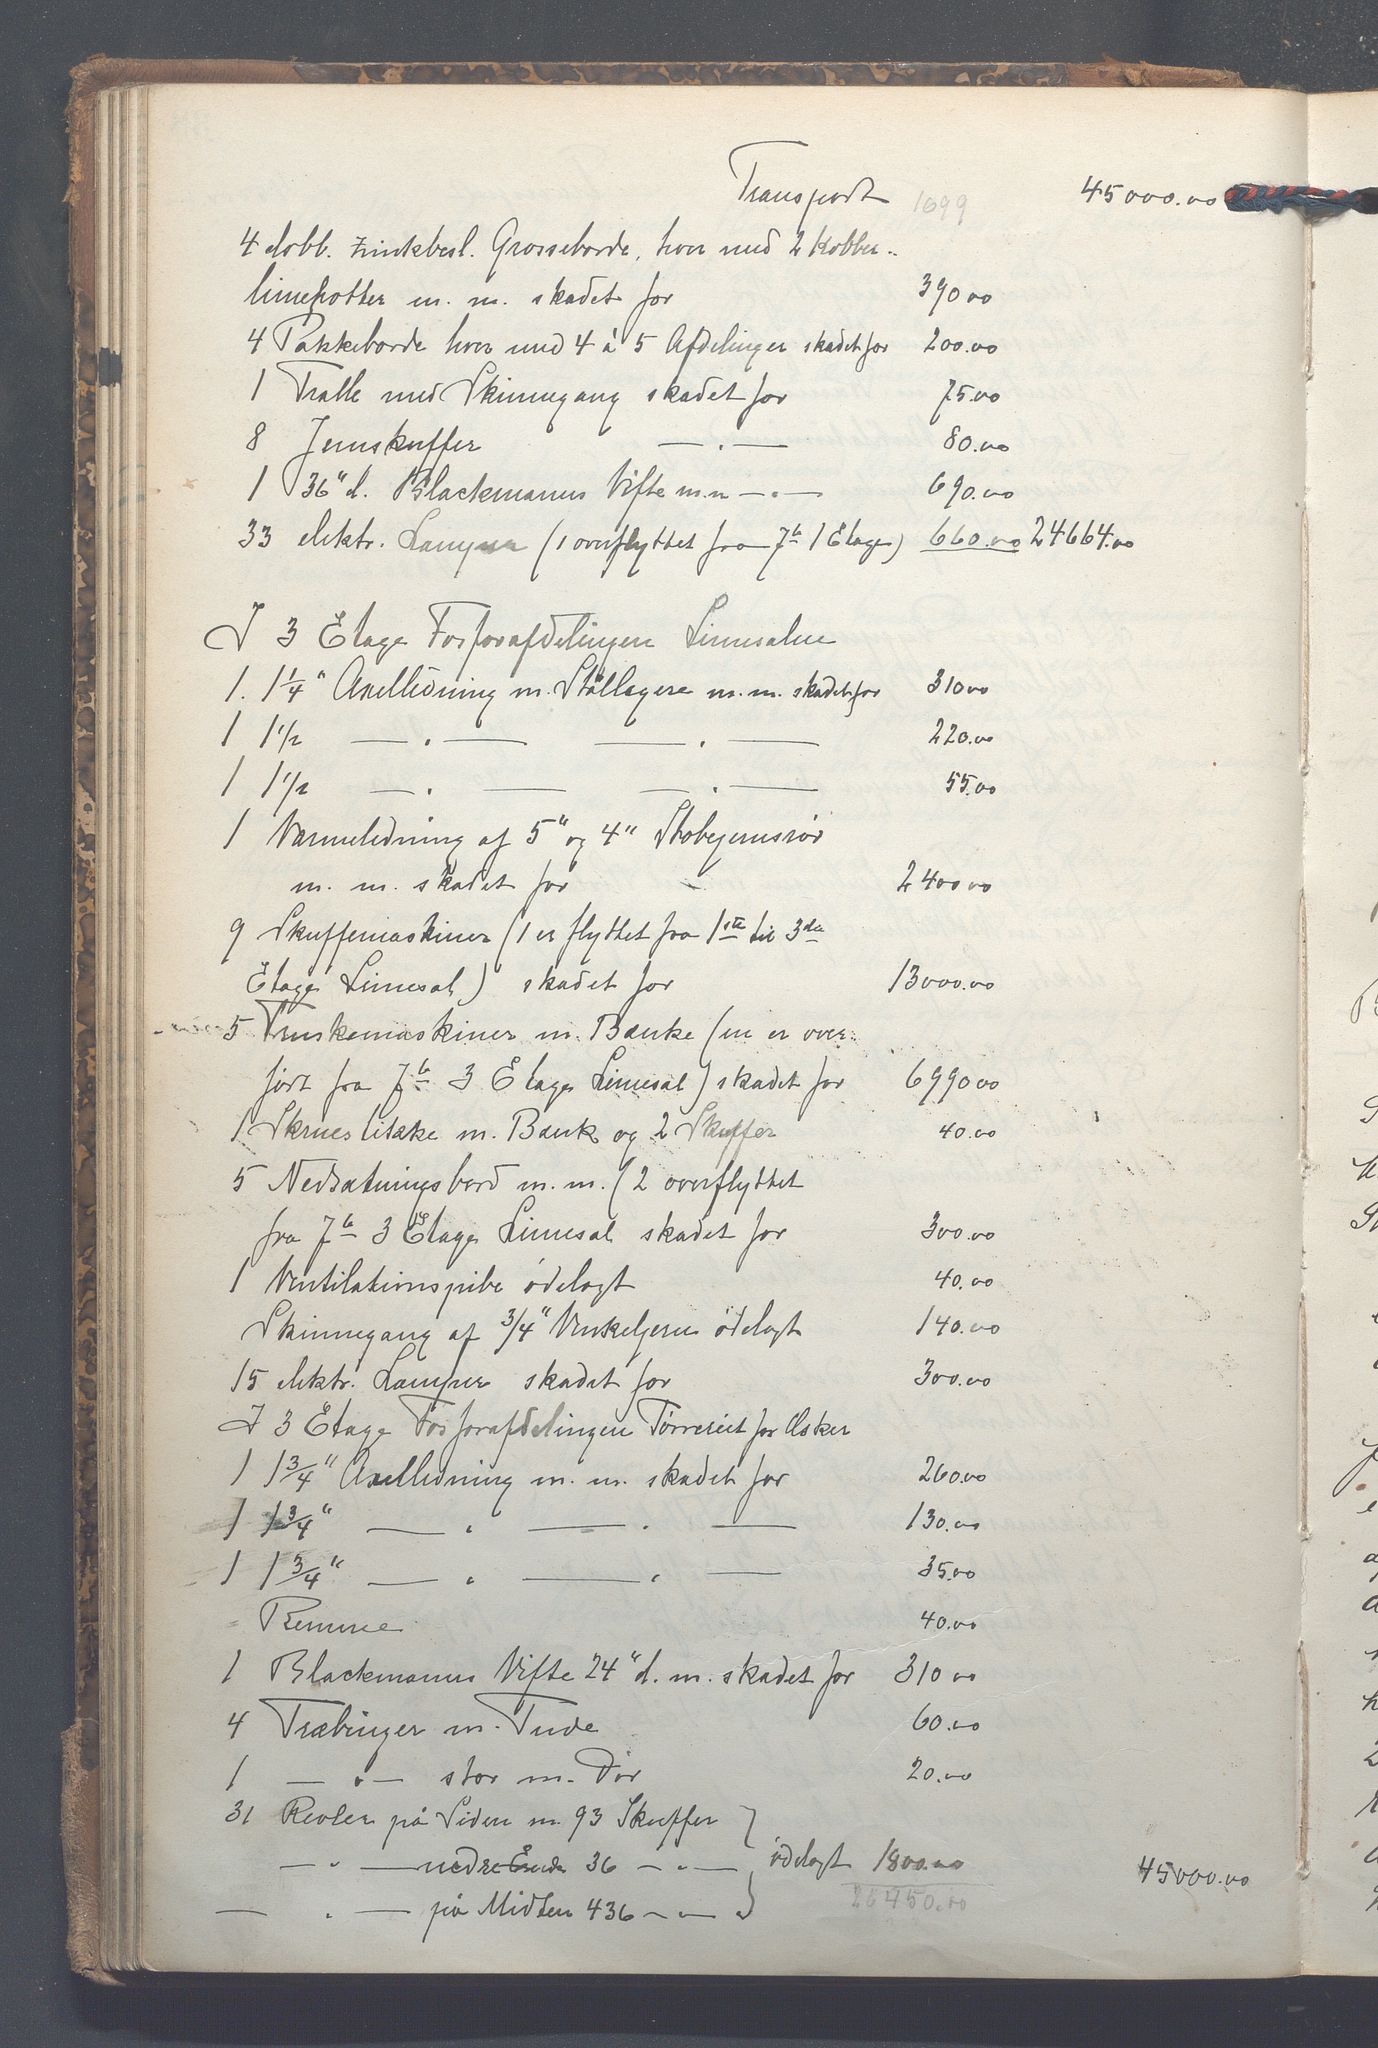 Transport 1699 45000.00
4 dobb. zinkbesl. Grosseborde, hver med 2 Kobber-
limepotter m. m. skadet for 390 00
4 Pakkeborde hver med 4 à 5 Afdelinger skadet for 200.00
1 Tralle med Skinnegang skadet for 75.00
8 Jernskuffer — . — 80.00
1 36" d. Blackmanns Vifte m.m — . — 690.00
33 elektr. Lamper (1 overflyttet fra 7 b 1 Etage) 660.00 24664.00
I 3 Etage Fosforafdelingen Limesalen
1. 1 1/4" Axelledning m. Stållagere m. m. skadet for 310 00
1 1 1/2 — . — — . — 220.00
1 1 1/2 — . — — . — 55.00
1 Varmeledning af 5" og 4" Støbejernsrør
m. m. skadet for 2400 00
9 Skuffemaskiner (1 er flyttet fra 1ste til 3die
Etage Limesal) skadet for 13000.00
5 Maskiner m. Bænke (en er over-
ført fra 7 b 3 Etage Limesal) skadet for 6990 00
1 Skruestikke m. Bænk og 2 Skuffer 40.00
5 Nedsætningsbord m. m. (2 overflyttet
fra 7 b 3 Etage Limesal skadet for 300.00
1 Ventilationspibe ödelagt 40.00
Skinnegang af 3/4" Vinkeljern ödelagt 140.00
15 elektr. Lamper skadet for 300.00
I 3 Etage Fosforafdelingen Tørreriet for Æsker
1 1 3/4" Axelledning m. m. skadet for 260.00
1 1 3/4" — . — . — 130.00
1 1 3/4" — . — . — 35.00
Remme 40.00
1 Blackmanns Vifte 24" d. m. skadet for 310 00
4 Træbinger m. Tude 60.00
1 — . — stor m. Dør 20.00
31 Reoler på Siden m 93 Skuffer
— . — nedre Ende 36 — . — ödelagt 1800.00 45000.00
— . — på Midten 436 — . — 26450.00